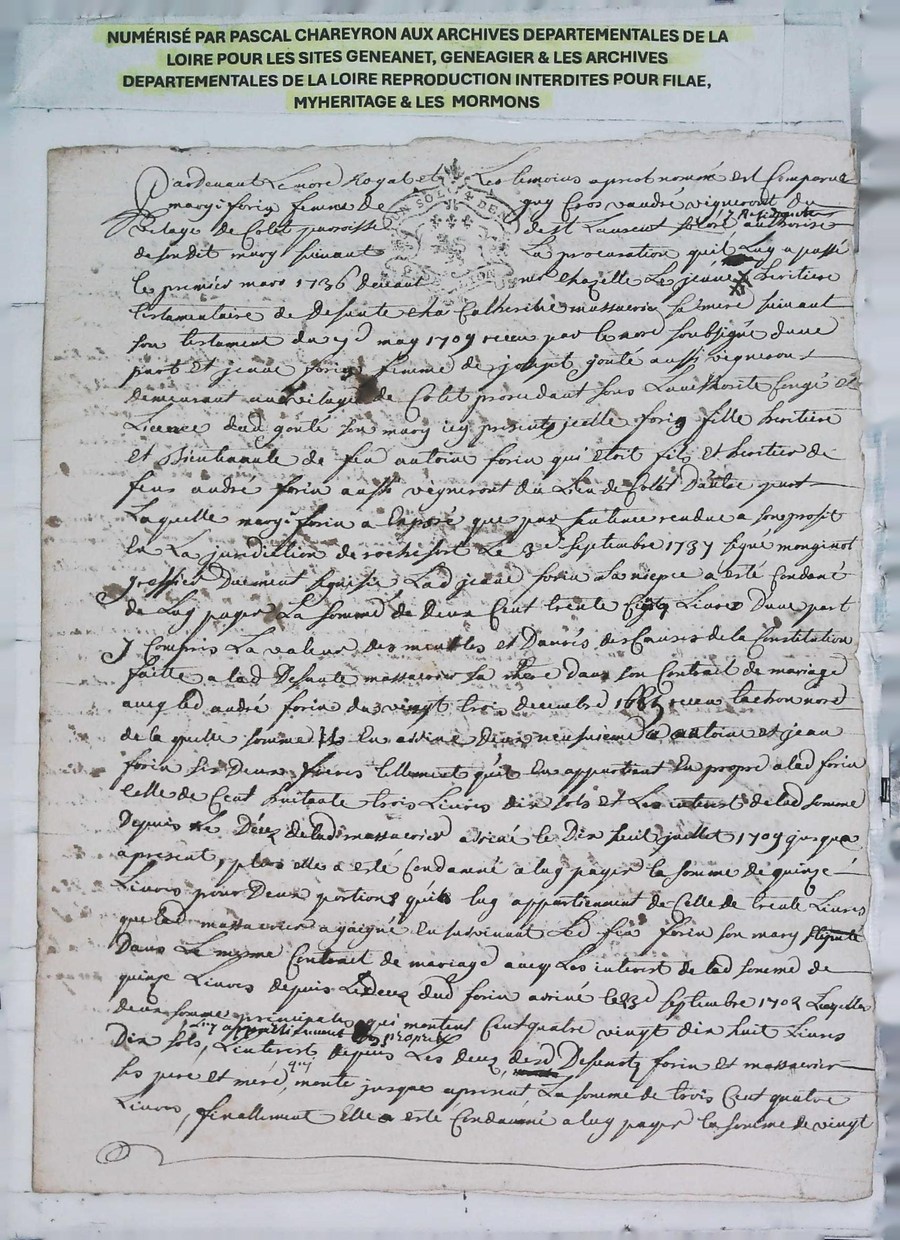 NUMÉRISÉ PAR PASCAL CHAREYRON AUX ARCHIVES DEPARTEMENTALES DE LA
LOIRE POUR LES SITES GENEANET, GENEAGIER & LES ARCHIVES
DEPARTEMENTALES DE LA LOIRE REPRODUCTION INTERDITES POUR FILAE,
MYHERITAGE & LES MORMONS
Pardevant Le nore Royal et Les temoins apres nommé est Comparue
marye forin femme de guy Cros vaudré vigneront du
vilage de Colet paroisse de st Laurent authorisé
de sondit mary suivant La procuration quil Luy a passé
le premier mars 1736 devant chazelle Le jeune heritiere
testamentaire de Defunte Catherine massacrier sa mere suivant
son testament du may 1709 receu par le nore soubsigné dune
part et jeane forin femme de joseph goute aussi vigneront
demeurant au vilage de Colet procedant sous Lauthorité Congé et
Licence dud goute son mary icy present, jcelle forin fille heritiere
et Bientenante de feu antoine forin qui etoit fils et heritier de
feus andré forin aussi vigneront du Lieu de Collet Dautre part
Laquelle marye forin a Exposé que par sentence rendue a son profit
En La jurisdiction de rochefort Le 3e septembre 1737 signé monginot
greffier Duement signifié Lad jeane forin sa niepce a esté Condané
de Luy payer La somme de Deux Cent trente Livres Dune part
y Compris La valeur des meubles et Danrés des Causes de la Constitution
faitte a lad Defunte massacrier sa mere dans son Contrait de mariage
avec led andré forin du vingt trois decembre receu tachon nore
de la quelle somme En antoine et jean
forin ses Deux freres tellement quil En appartient En propre a lad forin
Celle de Cent huitante trois Livres dix sols et Les interest de lad somme
Depuis le Décez de lad massacrier arivé le Dix huit juillet 1709 jusque
apresent, plus elle a esté Condamné a luy payer la somme de quinze
Livres pour Deux portions quils luy appartiennent de Celle de trente Livres
que lad massacrier a gaigné En survivant Led feu forin son mary
Dans Le mesme Contrait de mariage avec Les interest de lad somme de
quinze Livres depuis Le decez dud forin arivé le 23e septembre 1702 Lesquelles
deux somme principalle qui montent Cent quatre vingt dix huit Livres
Dix sols, Linterest depuis Les decez desd Defunts forin et massacrier
ses pere et mere, monte jusque apresent La somme de trois Cent quatre
Livres, finallement Elle a esté Condamné a luy payer la somme de vingt